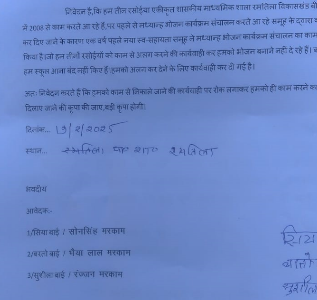 निवेदन है,कि हम तीन रसोईया एकीकृत शासकीय माध्यमिक शाला रमतिला विकासखंड
में 2008 से काम करते आ रहे हैं,पर पहले से मध्यान्ह भोजन कार्यक्रम संचालन करते आ रहे समूह के द्वारा
कर दिए जाने के कारण एक वर्ष पहले नया स्व-सहायता समूह ने मध्यान्ह भोजन कार्यक्रम संचालन का काम
किया।जो हम तीनों रसोईयों को काम से अलग करने की कार्यवाही कर हमको भोजन बनाने नहीं दे रहे हैं।
हम स्कूल आना बंद नहीं किए हैं,हमको अलग कर देने के लिए कार्यवाही कर दी गई है।
अतः निवेदन करते हैं कि हमको काम से निकाले जाने की कार्यवाही पर रोक लगाकर हमको ही काम करने का
दिलाए जाने की कृपा की जाए,बड़ी कृपा होगी।
दिनांक... 19/2/2025
स्थान... रमतिला
भवदीय
आवेदक:-
1/सिया बाई / सोनसिंह मरकाम
2/बरातो बाई / भैया लाल मरकाम
3/सुशीला बाई / रंज्जन मरकाम